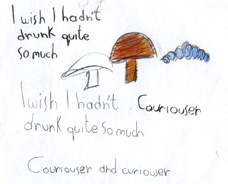 I wish I hadn't
drunk quite
so much
I wish I hadn't. Couriouser
drunk quite so much
Couriouser and curiouser